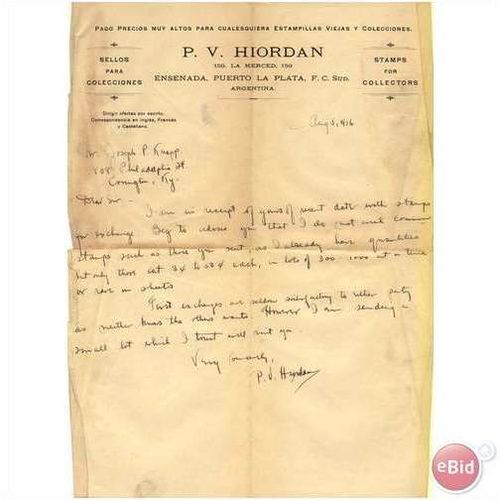 PAGO PRECIOS MUY ALTOS PARA CUALESQUIERA ESTAMPILLAS VIEJAS Y COLECCIONES.
SELLOS
PARA
COLECCIONES
P. V. HIORDAN
150, LA MERCED, 150
ENSENADA, PUERTO LA PLATA, F. C. SUD.
ARGENTINA.
STAMPS
FOR
COLLECTORS
Dirigir ofertas por escrito.
Correspondencia en Inglés, Francés
y Castellano.
Mr. Joseph P. Knapp
Philadelphia St
Covington, Ky.
Dear Sir -
I am in receipt of yours of recent date with stamps
for exchange. Beg to advise you that I do not need common
stamps such as those you sent, as I already have quantities
but only those cat 3¢ to 50¢ each, in lots of 300-1000 at a time
or rare in sheets
First exchanges are seldom satisfactory to either party
as neither knows the others wants. However I am sending a
small lot which I trust will suit you.
Very truly,
P. V. Hiordan
eBid